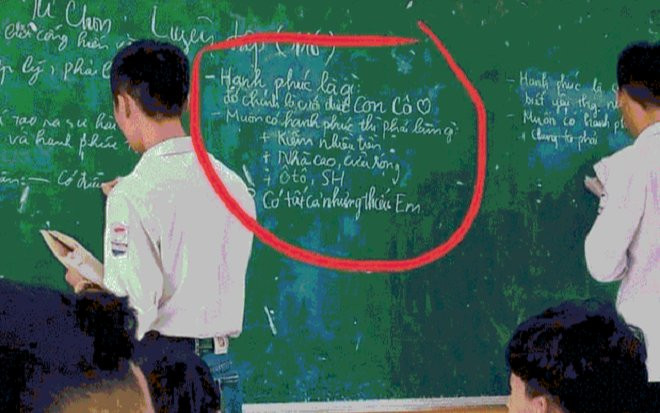 Tự Chọn Luyện tập
cống hiến
lý, phải
tạo ra
và hạnh phúc
Có
- Hạnh phúc là gì:
đó chính là cưới được Con Cô ♡
- Muốn có hạnh phúc thì phải làm gì
+ Kiếm nhiều tiền
+ Nhà cao, cửa rộng
+ Ôtô, SH
Có tất cả nhưng thiếu Em
- Hạnh phúc là
biết yêu thg
- Muốn có hạnh
+ Chúng ta phải